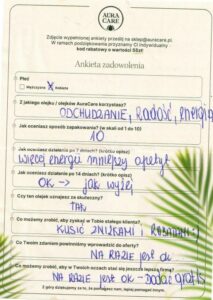 AURA
CARE
Zdjęcie wypełnionej ankiety prześlij na sklep@auracare.pl.
W ramach podziękowania przyznamy Ci indywidualny
kod rabatowy o wartości 50zł!
Ankieta zadowolenia
Płeć
Mężczyzna X Kobieta
Z jakiego olejku / olejków AuraCare korzystasz?
ODCHUDZANIE, Radość, energia
Jak oceniasz sposób zapakowania? (w skali od 1 do 10)
10
Jak oceniasz działanie po 7 dniach? (krótko opisz)
więcej energii mniejszy apetyt
Jak oceniasz działanie po 14 dniach? (krótko opisz)
OK -> jak wyżej
Czy ten olejek uznajesz za skuteczny?
TAK
Co możemy zrobić, aby zyskać w Tobie stałego klienta?
KUSIĆ ZNIŻKAMI I RABATAMI :)
Co Twoim zdaniem powinniśmy wprowadzić do oferty?
NA RAZIE jest ok
Co możemy zrobić, aby w Twoich oczach stać się jeszcze lepszą firmą?
NA RAZIE jest OK - Dodać gratis
Z góry dziękujemy za to, że pomagasz nam, lepiej pomagać innym.